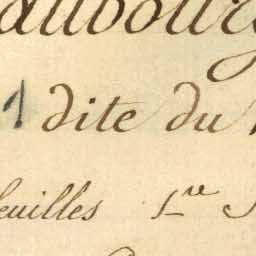 aubourg
dite du
feuilles 1.re